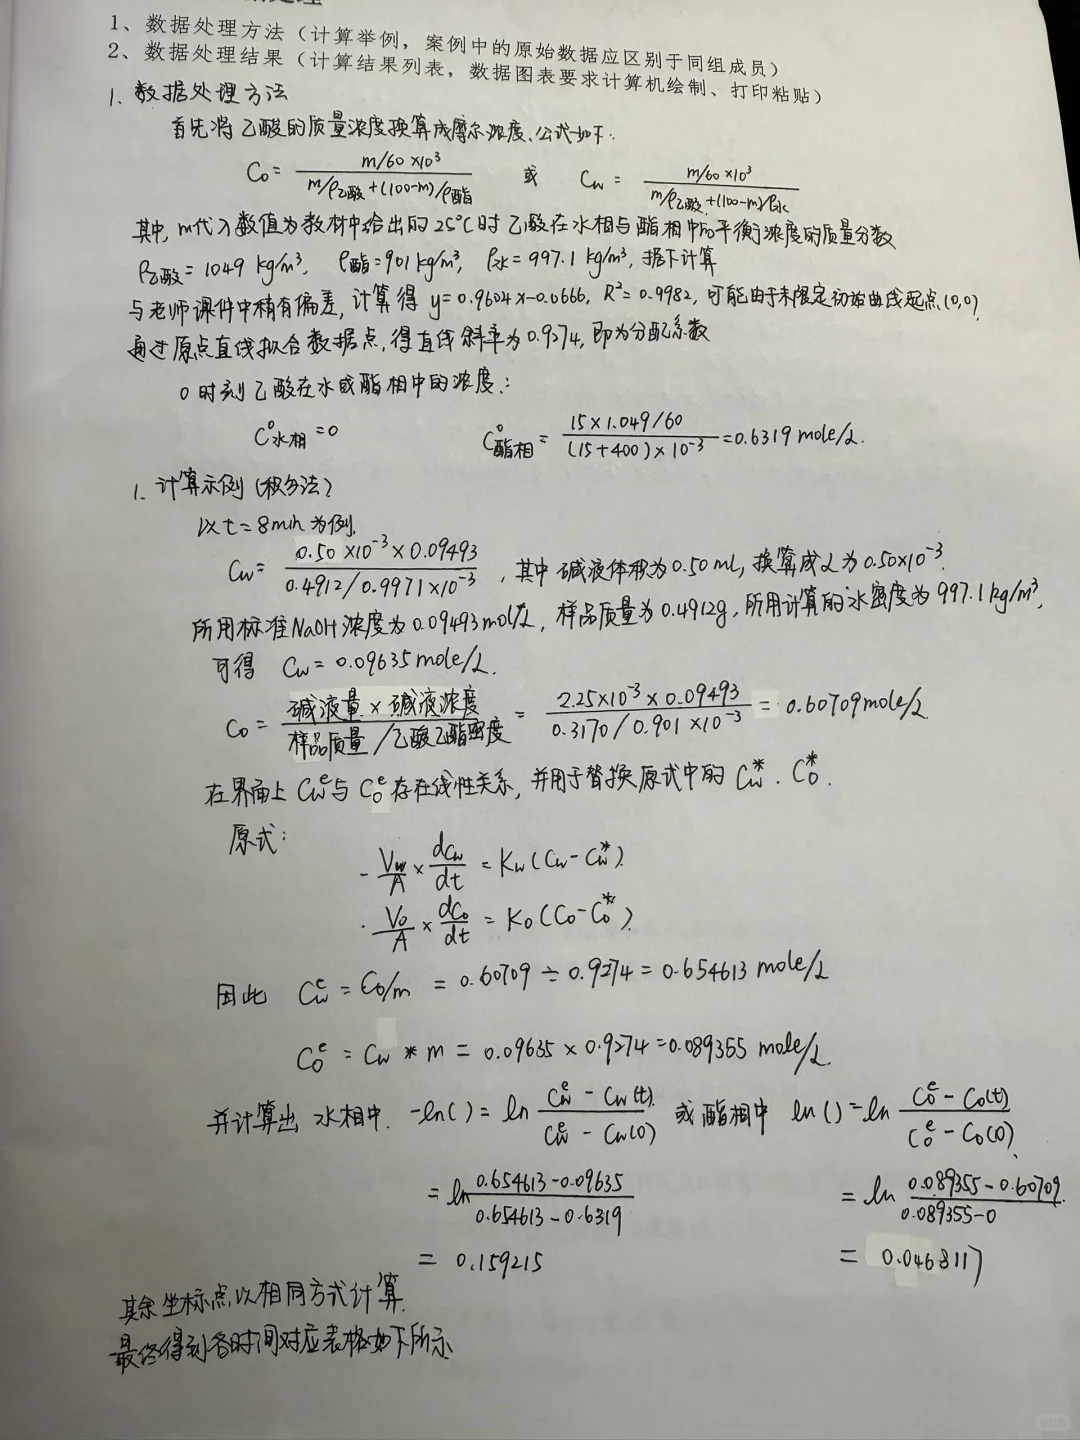 1、数据处理方法（计算举例，案例中的原始数据应区别于同组成员）
2、数据处理结果（计算结果列表，数据图表要求计算机绘制、打印粘贴）
1. 数据处理方法
首先将乙酸的质量浓度换算成摩尔浓度、公式如下:
C₀ = (m/60 ×10³) / (m/ρ乙酸 + (100-m)/ρ酯) 或 Cw = (m/60 ×10³) / (m/ρ乙酸 + (100-m)/ρ水)
其中, m代入数值为教材中给出的25℃时乙酸在水相与酯相中的平衡浓度的质量分数
ρ乙酸 = 1049 kg/m³, ρ酯 = 901 kg/m³, ρ水 = 997.1 kg/m³, 据下计算
与老师课件中稍有偏差, 计算得 y=0.9604x-0.0666, R²=0.9982, 可能由于未限定初始曲线起点(0,0)
通过原点直线拟合数据点, 得直线斜率为0.9274, 即为分配系数
0时刻乙酸在水或酯相中的浓度:
C⁰水相 = 0 C⁰酯相 = (15×1.049/60) / ((15+400)×10⁻³) = 0.6319 mole/L.
1. 计算示例 (积分法)
以t=8min为例,
Cw = (0.50×10⁻³×0.09493) / (0.4912/0.9971×10⁻³), 其中碱液体积为0.50ml, 换算成L为0.50×10⁻³.
所用标准NaOH浓度为0.09493mol/L, 样品质量为0.4912g, 所用计算的水密度为997.1kg/m³,
可得 Cw = 0.09635 mole/L.
C₀ = (碱液量 × 碱液浓度) / (样品质量/乙酸乙酯密度) = (2.25×10⁻³×0.09493) / (0.3170/0.901×10⁻³) = 0.60709mole/L
在界面上 Cwᵉ与C₀ᵉ存在线性关系, 并用于替换原式中的 Cw*. C₀*.
原式:
- Vw/A × dCw/dt = Kw(Cw-Cw*)
· V₀/A × dC₀/dt = K₀(C₀-C₀*)
因此 Cwᵉ = C₀/m = 0.60709 ÷ 0.9274 = 0.654613 mole/L
C₀ᵉ = Cw * m = 0.09635 × 0.9274 = 0.089355 mole/L
并计算出 水相中. -ln( ) = ln (Cwᵉ - Cw(t)) / (Cwᵉ - Cw(0)) 或 酯相中 ln( ) = ln (C₀ᵉ - C₀(t)) / (C₀ᵉ - C₀(0))
= ln (0.654613-0.09635) / (0.654613-0.6319) = ln (0.089355-0.60709) / (0.089355-0)
= 0.159215 = 0.046817
其余坐标点以相同方式计算.
最终得到各时间对应表格如下所示